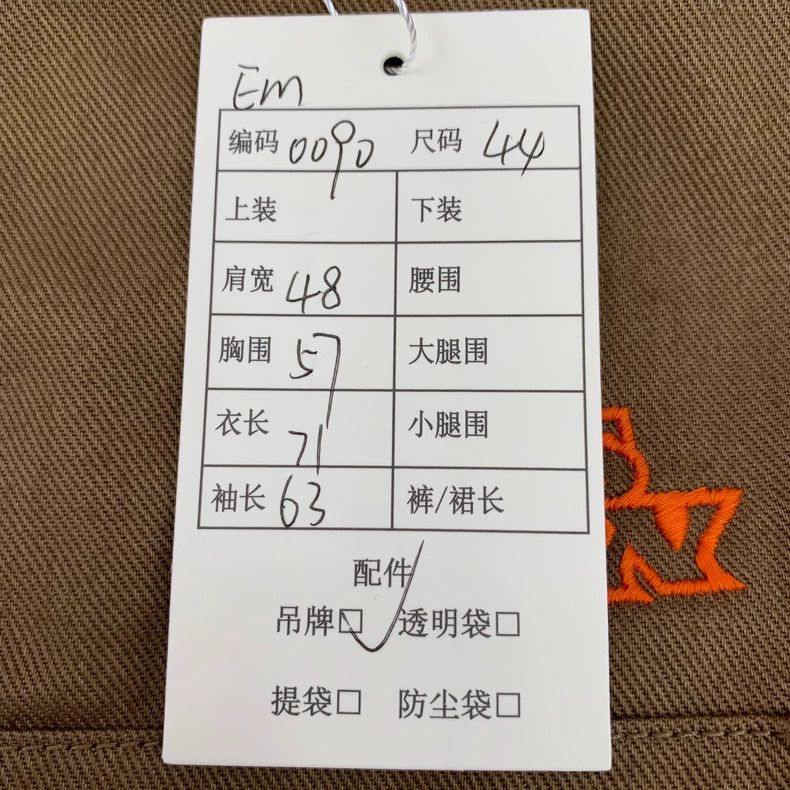 Em
编码 0090 尺码 44
上装 下装
肩宽 48 腰围
胸围 57 大腿围
衣长 71 小腿围
袖长 63 裤/裙长
配件
吊牌☑ 透明袋□
提袋□ 防尘袋□